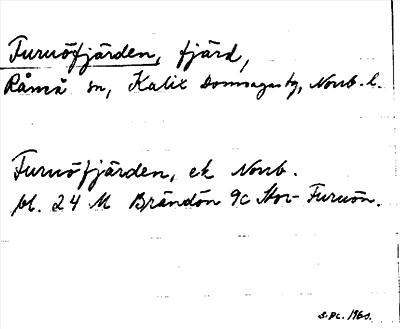 Furuöfjärden, fjärd,
Råneå sn, Kalix Domsagas tg, Norrb. l.
Furuöfjärden, ek Norrb.
bl. 24 M Brändön 9c Stor-Furuön.
1960.